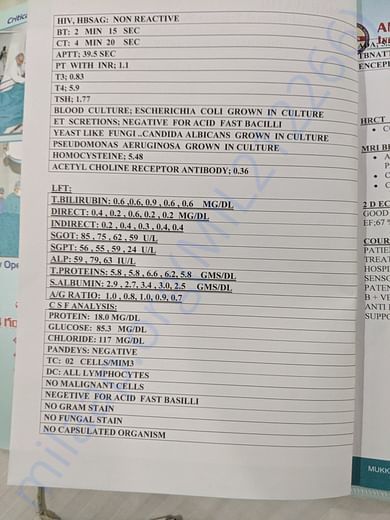 Critical
HIV, HBSAG: NON REACTIVE
BT: 2 MIN 15 SEC
CT: 4 MIN 20 SEC
APTT; 39.5 SEC
PT WITH INR; 1.1
T3; 0.83
T4; 5.9
TSH; 1.77
BLOOD CULTURE; ESCHERICHIA COLI GROWN IN CULTURE
ET SCRETIONS; NEGATIVE FOR ACID FAST BACILLI
YEAST LIKE FUNGI ..CANDIDA ALBICANS GROWN IN CULTURE
PSEUDOMONAS AERUGINOSA GROWN IN CULTURE
HOMOCYSTEINE; 5.48
ACETYL CHOLINE RECEPTOR ANTIBODY; 0.36
LFT:
T.BILIRUBIN: 0.6 ,0.6, 0.9 , 0.6 , 0.6 MG/DL
DIRECT: 0.4 , 0.2 , 0.6, 0.2 , 0.2 MG/DL
INDIRECT: 0.2 , 0.4 , 0.3 , 0.4, 0.4
SGOT: 85 , 75 , 62 , 59 U/L
SGPT: 56 , 55 , 59 , 24 U/L
ALP: 59 , 79, 63 IU/L
T.PROTEINS: 5.8 , 5.8 , 6.6 , 6.2, 5.8 GMS/DL
S.ALBUMIN: 2.9 , 2.7, 3.4 , 3.0, 2.5 GMS/DL
A/G RATIO: 1.0 , 0.8, 1.0, 0.9, 0.7
C S F ANALYSIS:
PROTEIN: 18.0 MG/DL
GLUCOSE: 85.3 MG/DL
CHLORIDE: 117 MG/DL
PANDEYS: NEGATIVE
TC: 02 CELLS/MIM3
DC: ALL LYMPHOCYTES
NO MALIGNANT CELLS
NEGETIVE FOR ACID FAST BASILLI
NO GRAM STAIN
NO FUNGAL STAIN
NO CAPSULATED ORGANISM
HRCT
MRI B
2 D EC
GOOD
EF;67
COUR
PATIE
TREAT
HOSPI
SENSO
PATEN
B + VE
ANTI
SUPPO
MUKK